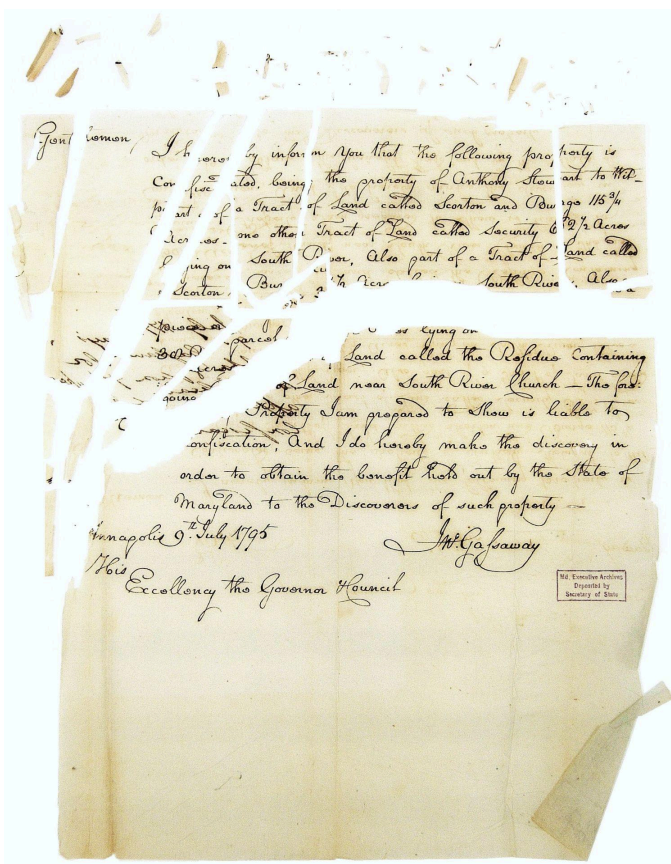 Gentlemen,
I hereby inform You that the following property is
Confiscated, being the property of Anthony Stewart to Wit—
part of a Tract of Land called Scorton and Burgo 115 3/4
Acres— one other Tract of Land called Security 2 1/2 Acres
lying on South River, Also part of a Tract of Land called
Scorton South River, Also a
parcel lying on
Land called the Residue Containing
of Land near South River Church — The fore
going Property I am prepared to Show is liable to
Confiscation, And I do hereby make the discovery in
order to obtain the benefit held out by the State of
Maryland to the Discoverers of such property —
Annapolis 9th. July 1795
Jno. Gassaway
His
Excellency the Governor & Council
Md. Executive Archives
Deposited by
Secretary of State